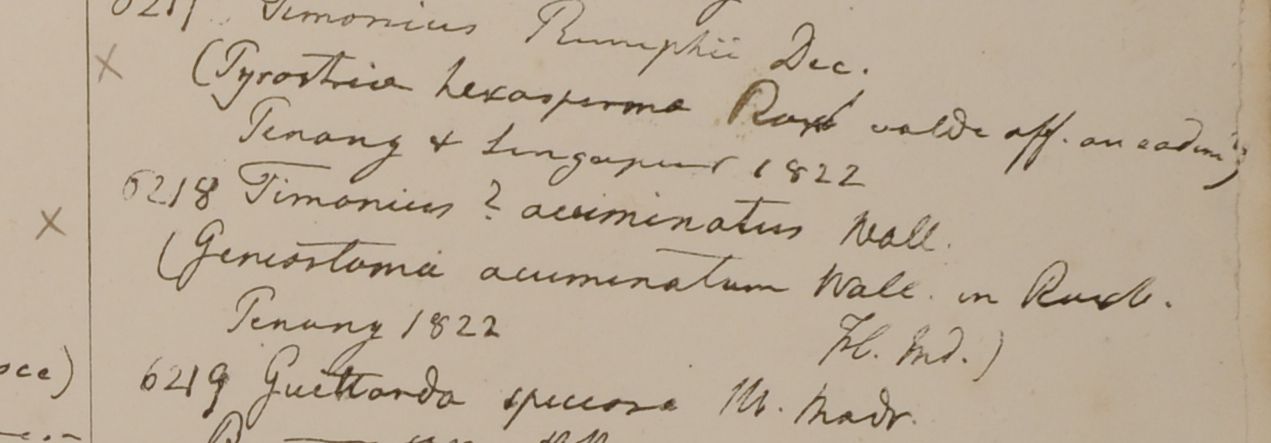 6217 Timonius Rumphii Dec.
(Pyrostria hexasperma Roxb valde aff. an eadem?)
Penang & Singapur 1822
6218 Timonius ? acuminatus Wall.
(Geniostoma acuminatum Wall. in Roxb.
Fl. Ind.)
Penang 1822
6219 Guettarda speciosa Hb. Madr.